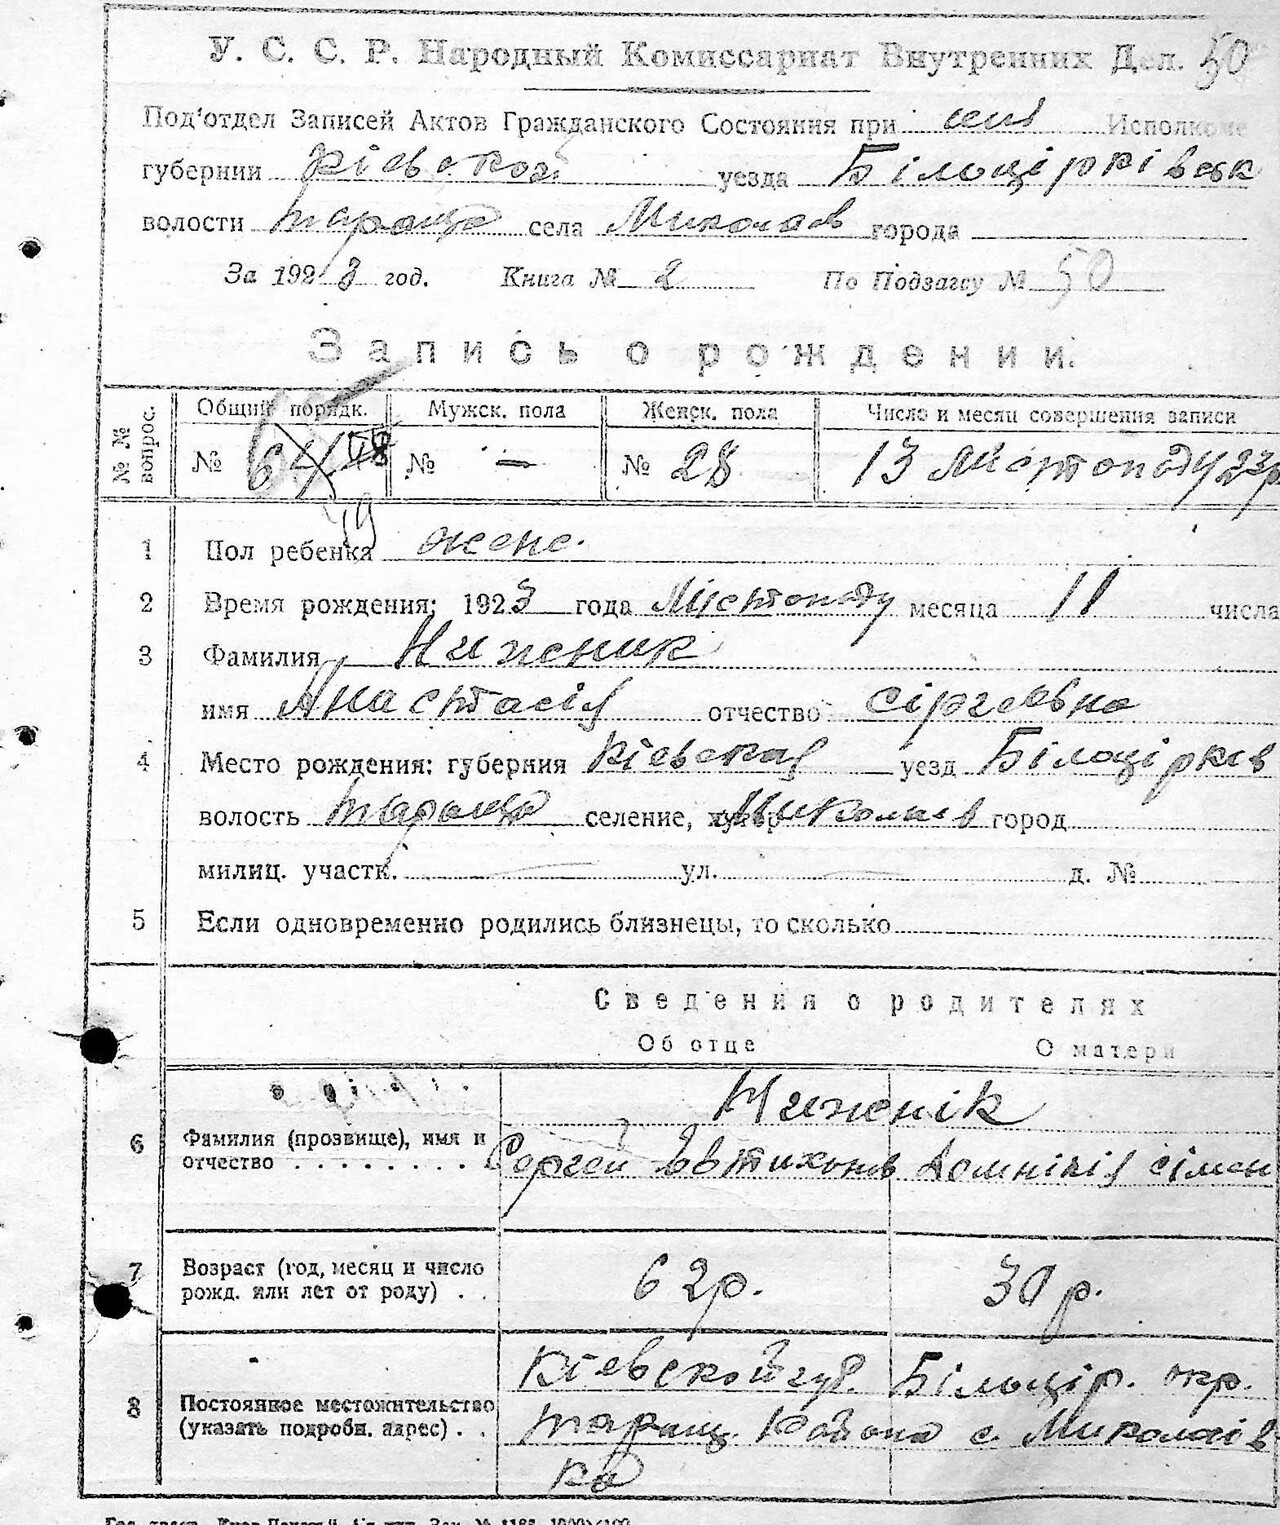 У. С. С. Р. Народный Комиссариат Внутренних Дел. 50
Под'отдел Записей Актов Гражданского Состояния при Исполкоме
губернии Кіевской уезда Білоцірківськ
волости Тараща села Миколаїв города
За 1923 год. Книга № 2 По Подзагсу № 50
Запись о рождении.
№ № вопрос. Общий порядк. Мужск. пола Женск. пола Число и месяц совершения записи
№ 64 № — № 28 13 Листопаду 23р.
19
1 Пол ребенка женс.
2 Время рождения: 1923 года Листопаду месяца 11 числа
3 Фамилия Ниженик
имя Анастасія отчество Сіргеевна
4 Место рождения: губерния Кіевская уезд Білоцірків
волость Тараща селение, хутор Миколаїв город
милиц. участк. ул. д. №
5 Если одновременно родились близнецы, то сколько
Сведения о родителях
Об отце О матери
Ниженік
6 Фамилия (прозвище), имя и
отчество . . . . . . . . Сергей Евтихонів Домнікія Сімен
7 Возраст (год, месяц и число
рожд. или лет от роду) . . 62р. 30р.
Кіевской губ. Білоцір. окр.
8 Постоянное местожительство
(указать подробн. адрес) . . Таращ. Района с. Миколаїв
ка